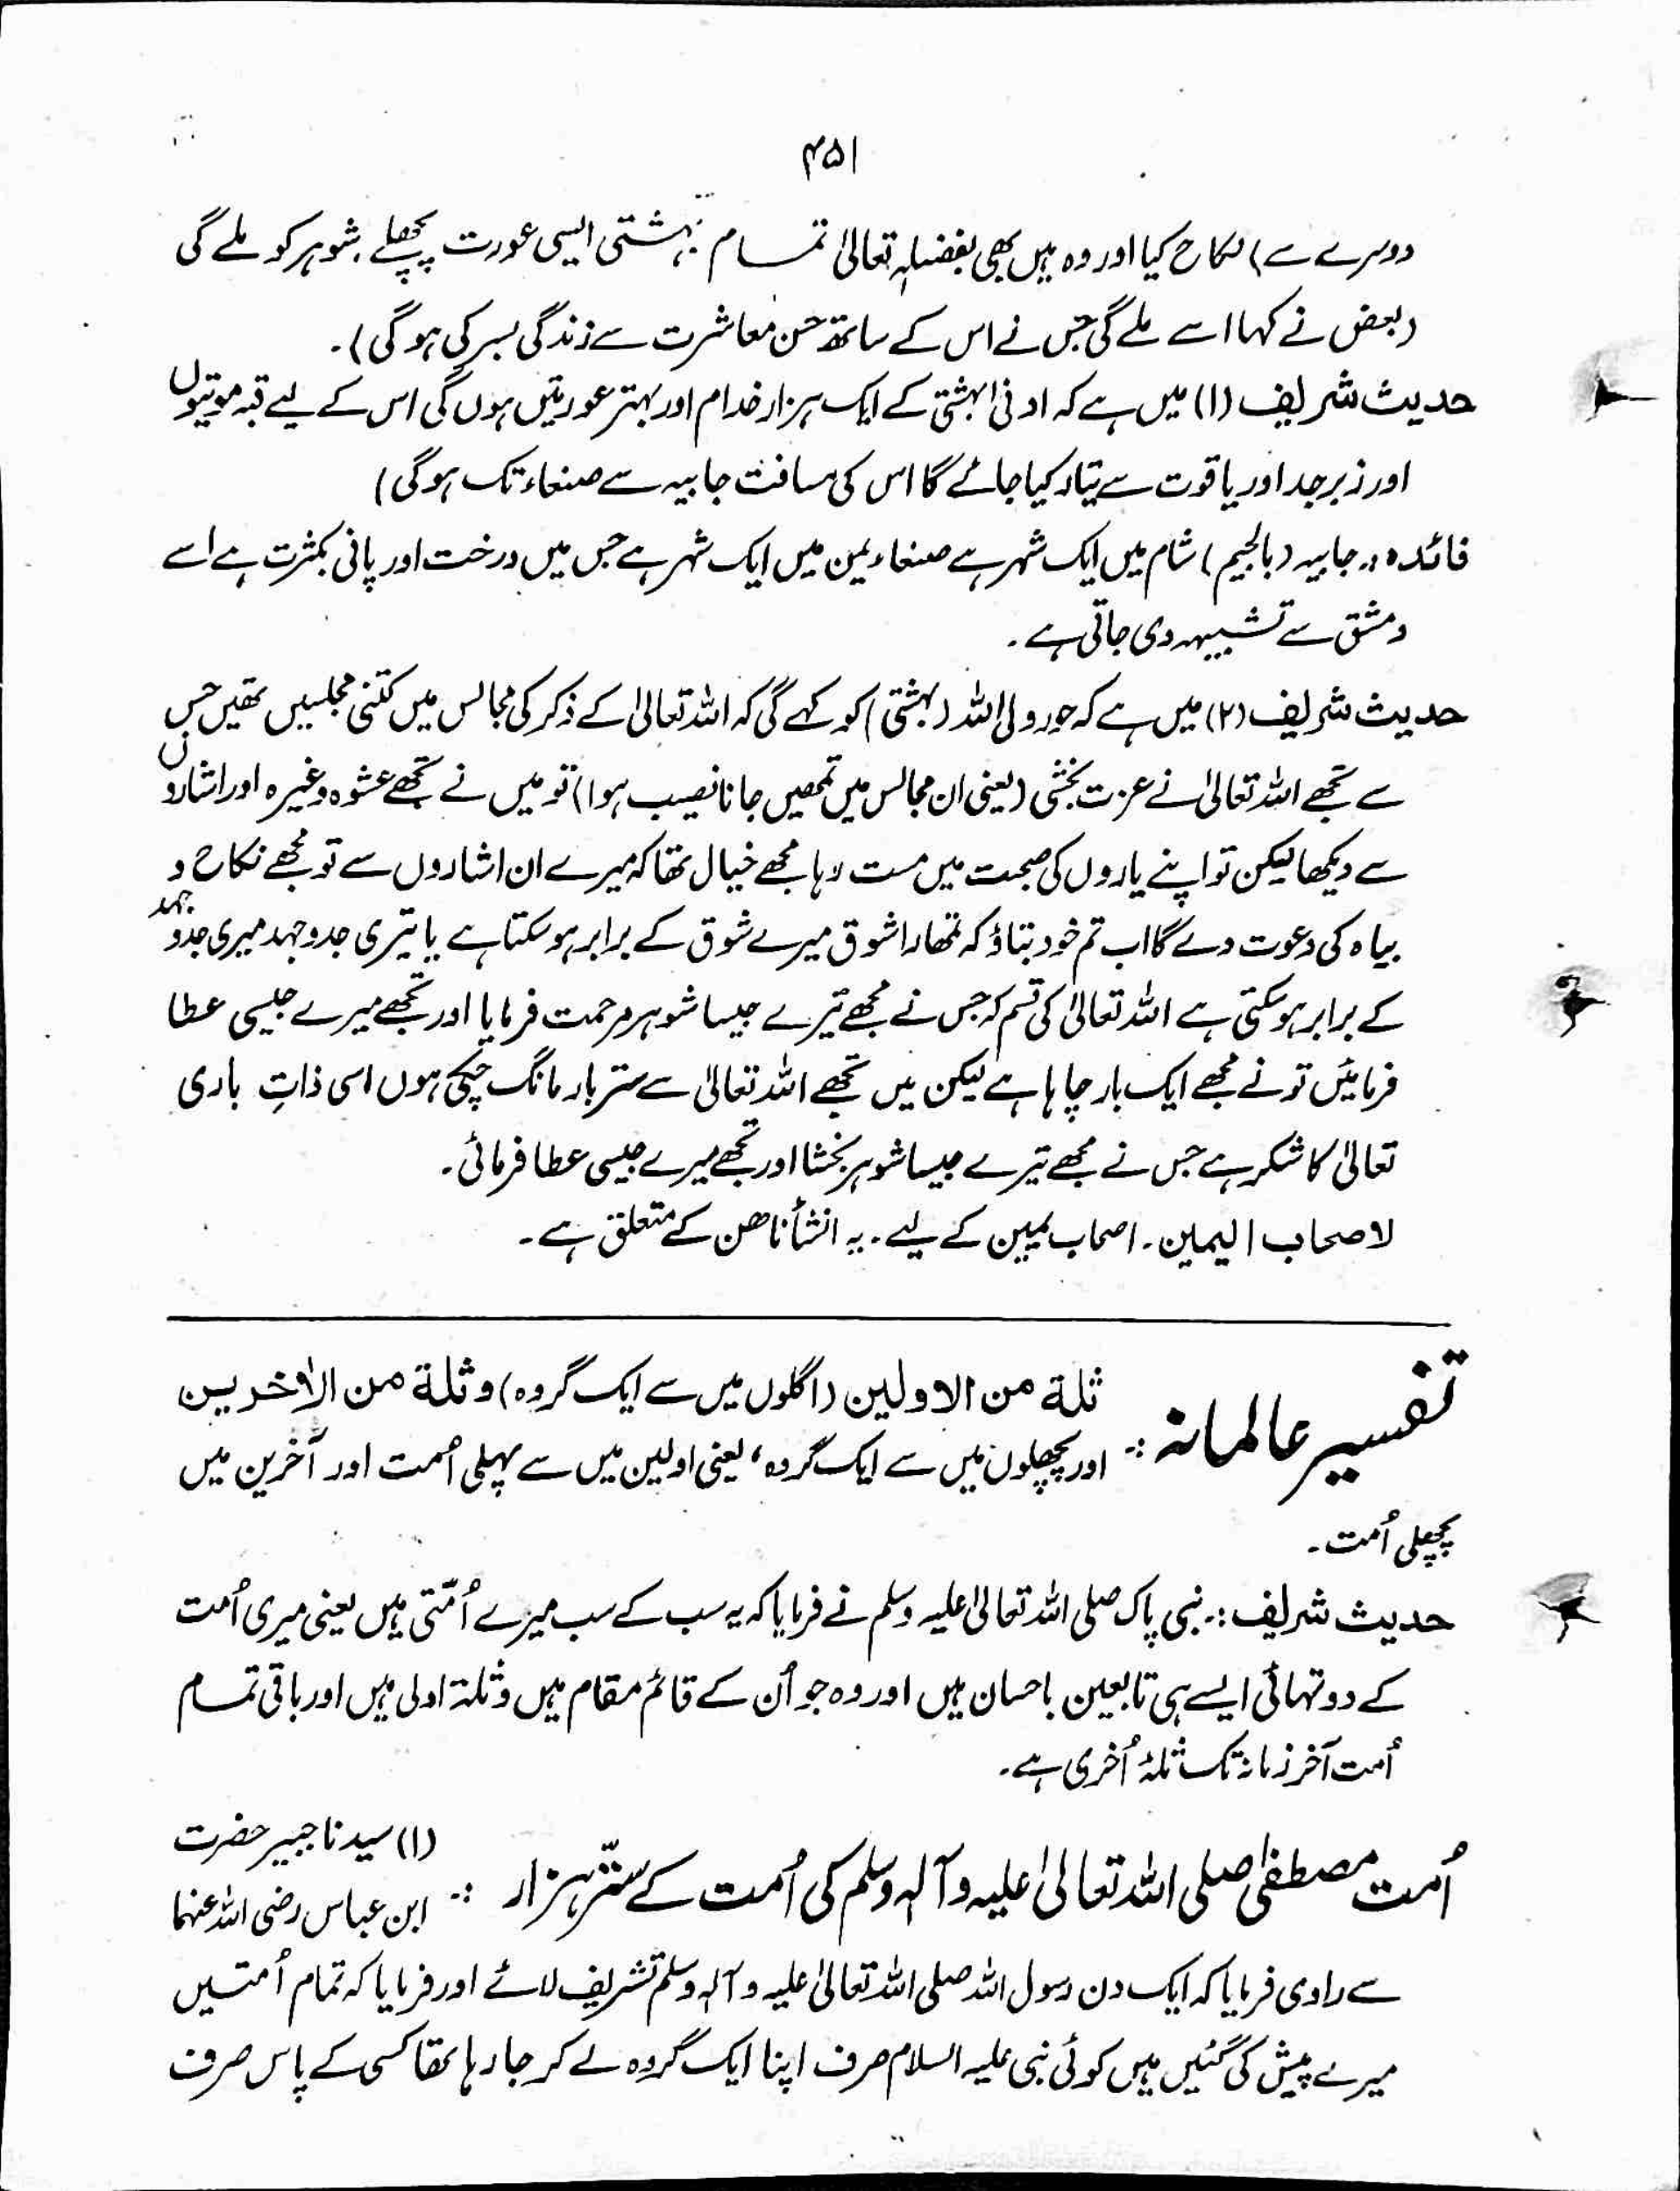 ۴۵۱
دوسرے سے) نکاح کیا اور وہ ہیں بھی بفضلہٖ تعالیٰ تمام بہشتی ایسی عورت پچھلے شوہر کو ملے گی
(بعض نے کہا اسے ملے گی جس نے اس کے ساتھ حسن معاشرت سے زندگی بسر کی ہو گی)۔
حدیث شریف (۱) میں ہے کہ ادنیٰ بہشتی کے ایک ہزار خدام اور بہتر عورتیں ہوں گی اس کے لیے قبہ موتیوں
اور زبرجد اور یاقوت سے تیار کیا جائے گا اس کی مسافت جابیہ سے صنعاء تک ہو گی)
فائدہ :۔ جابیہ (بالجیم) شام میں ایک شہر ہے صنعاء یمن میں ایک شہر ہے جس میں درخت اور پانی بکثرت ہے اسے
دمشق سے تشبیہہ دی جاتی ہے۔
حدیث شریف (۲) میں ہے کہ حور ولی اللہ (بہشتی) کو کہے گی کہ اللہ تعالیٰ کے ذکر کی مجالس میں کتنی مجلسیں تھیں جس
سے تجھے اللہ تعالیٰ نے عزت بخشی (یعنی ان مجالس میں تمھیں جانا نصیب ہوا) تو میں نے تجھے عشوہ وغیرہ اور اشاروں
سے دیکھا لیکن تو اپنے یاروں کی صحبت میں مست رہا مجھے خیال تھا کہ میرے ان اشاروں سے تو مجھے نکاح و
بیاہ کی دعوت دے گا اب تم خود بتاؤ کہ تمھارا شوق میرے شوق کے برابر ہو سکتا ہے یا تیری جدوجہد میری جدوجہد
کے برابر ہو سکتی ہے اللہ تعالیٰ کی قسم کہ جس نے مجھے تیرے جیسا شوہر مرحمت فرمایا اور تجھے میرے جیسی عطا
فرمائیں تو نے مجھے ایک بار چاہا ہے لیکن میں تجھے اللہ تعالیٰ سے ستر بار مانگ چکی ہوں اسی ذاتِ باری
تعالیٰ کا شکر ہے جس نے مجھے تیرے جیسا شوہر بخشا اور تجھے میرے جیسی عطا فرمائی۔
لاصحاب الیمین۔ اصحاب یمین کے لیے۔ یہ انشأناھن کے متعلق ہے۔
تفسیر عالمانہ :۔ ثلة من الاولین (اگلوں میں سے ایک گروہ) وثلة من الاٰخرین
اور پچھلوں میں سے ایک گروہ، یعنی اولین میں سے پہلی اُمت اور آخرین میں
پچھلی اُمت۔
حدیث شریف :۔ نبی پاک صلی اللہ تعالیٰ علیہ وسلم نے فرمایا کہ یہ سب کے سب میرے اُمّتی ہیں یعنی میری اُمت
کے دو تہائی ایسے ہی تابعین باحسان ہیں اور وہ جو اُن کے قائم مقام ہیں وثلة اولی ہیں اور باقی تمام
اُمت آخر زمانہ تک ثلۂ اُخری ہے۔
اُمت مصطفیٰ صلی اللہ تعالیٰ علیہ وآلہٖ وسلم کی اُمت کے ستّر ہزار :۔ (۱) سیدنا جبیر حضرت
ابن عباس رضی اللہ عنہما
سے راوی فرمایا کہ ایک دن رسول اللہ صلی اللہ تعالیٰ علیہ وآلہٖ وسلم تشریف لائے اور فرمایا کہ تمام اُمتیں
میرے پیش کی گئیں ہیں کوئی نبی علیہ السلام صرف اپنا ایک گروہ لے کر جا رہا تھا کسی کے پاس صرف